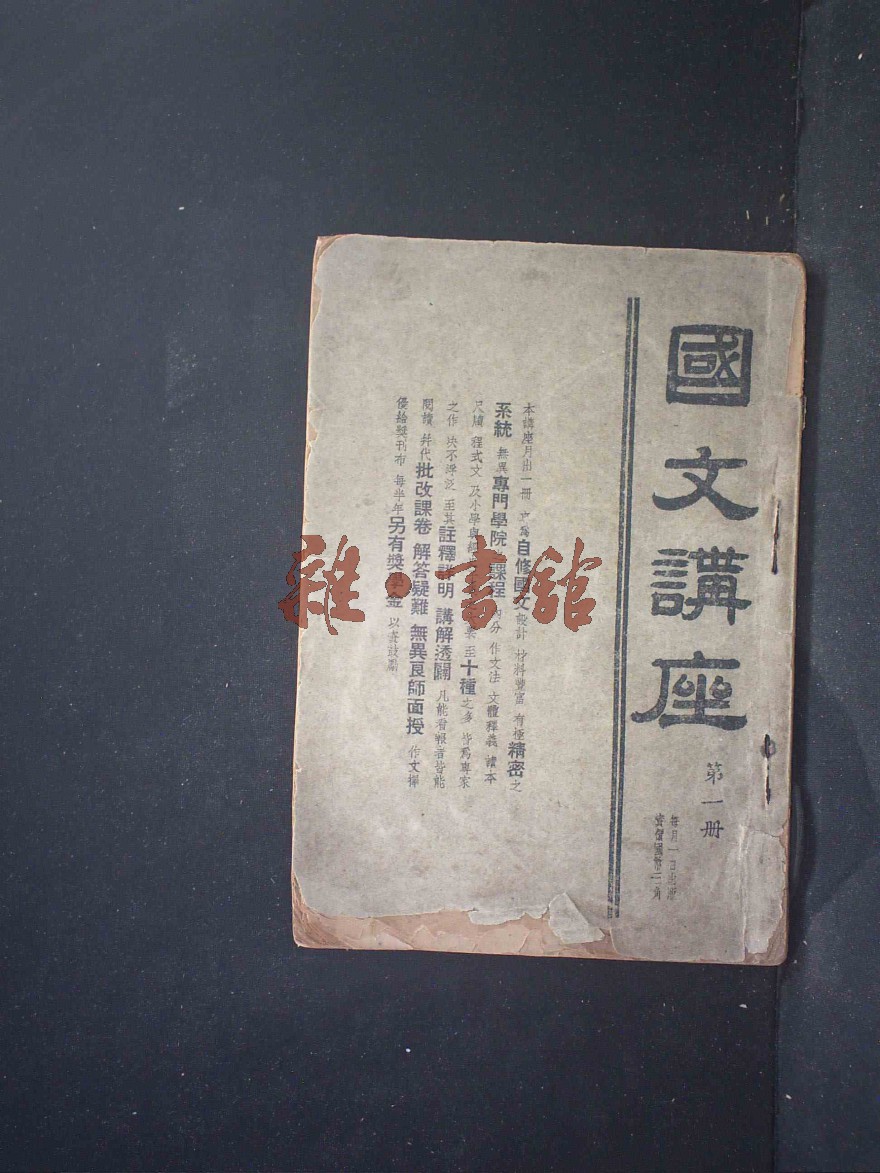 國文講座
第一册
每月一日出版
實價國幣二角
本講座月出一册 文爲自修國文設計 材料豐富 有極精密之
系統 無異專門學院 課程 內分 作文法 文體釋義 讀本
尺牘 程式文 及小學與經 至十種之多 皆爲專家
之作 决不浮泛 至其註釋詳明 講解透闢 凡能看報者皆能
閱讀 幷代批改課卷 解答疑難 無異良師面授 作文擇
優給獎刊布 每半年另有獎學金 以資鼓勵
雜·書館